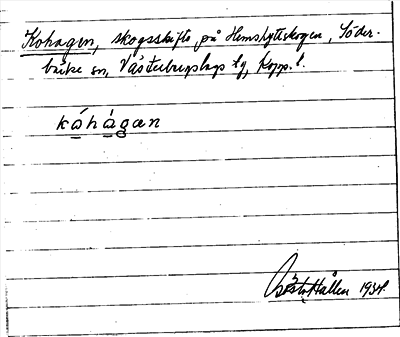 Kohagen, skogsskifte på Hemshyttskogen, Söder-
bärke sn, Västerbergslags tg, Kopp. l.
kåhågan
Gösta Hållen 1934.